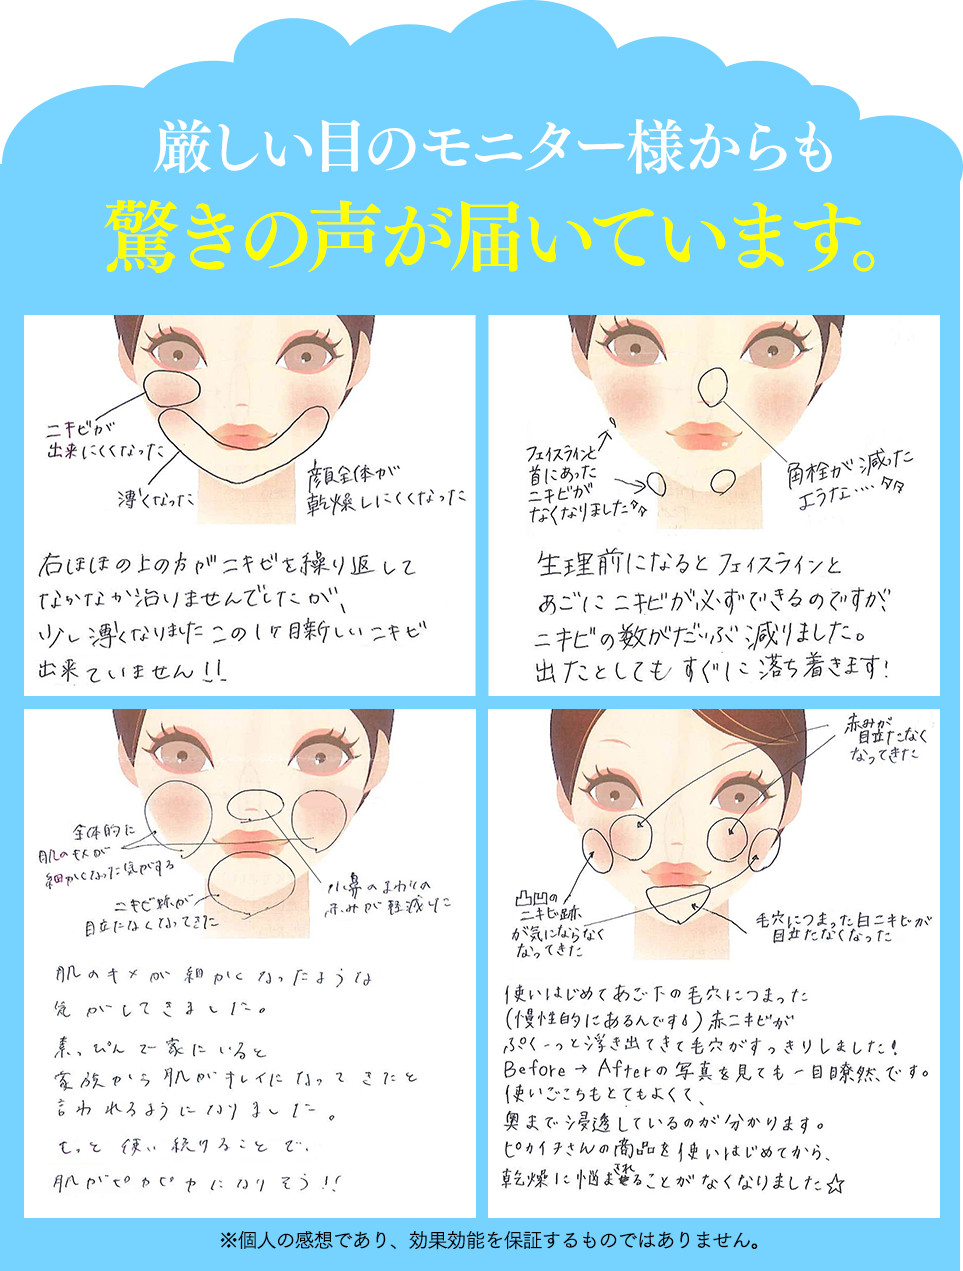 厳しい目のモニター様からも
驚きの声が届いています。
ニキビが
出来にくくなった
薄くなった
顔全体が
乾燥しにくくなった
右ほほの上の方がニキビを繰り返して
なかなか治りませんでしたが、
少し薄くなりましたこの1ヶ月新しいニキビ
出来ていません!!
フェイスラインと
首にあった
ニキビが
なくなりました
角栓が減った
ような‥‥
生理前になるとフェイスラインと
あごにニキビが必ずできるのですが、
ニキビの数がだいぶ減りました。
出たとしてもすぐに落ち着きます!
全体的に
肌のキメが
細かくなった気がする
ニキビ跡が
目立たなくなってきた
小鼻のまわりの
赤みが軽減した
肌のキメが細かくなったような
気がしてきました。
素っぴんで家にいると
家族から肌がキレイになってきたと
言われるようになりました。
もっと使い続けることで、
肌がピカピカになりそう!!
赤みが
目立たなく
なってきた
凸凹の
ニキビ跡
が気にならなく
なってきた
毛穴につまった白ニキビが
目立たなくなった
使いはじめてあご下の毛穴につまった
(慢性的にあるんです)赤ニキビが
ぷくーっと浮き出てきて毛穴がすっきりしました!
Before→Afterの写真を見ても一目瞭然、です。
使いごこちもとてもよくて、
奥まで浸透しているのが分かります。
ピカイチさんの商品を使いはじめてから、
乾燥に悩まされることがなくなりました☆
※個人の感想であり、効果効能を保証するものではありません。